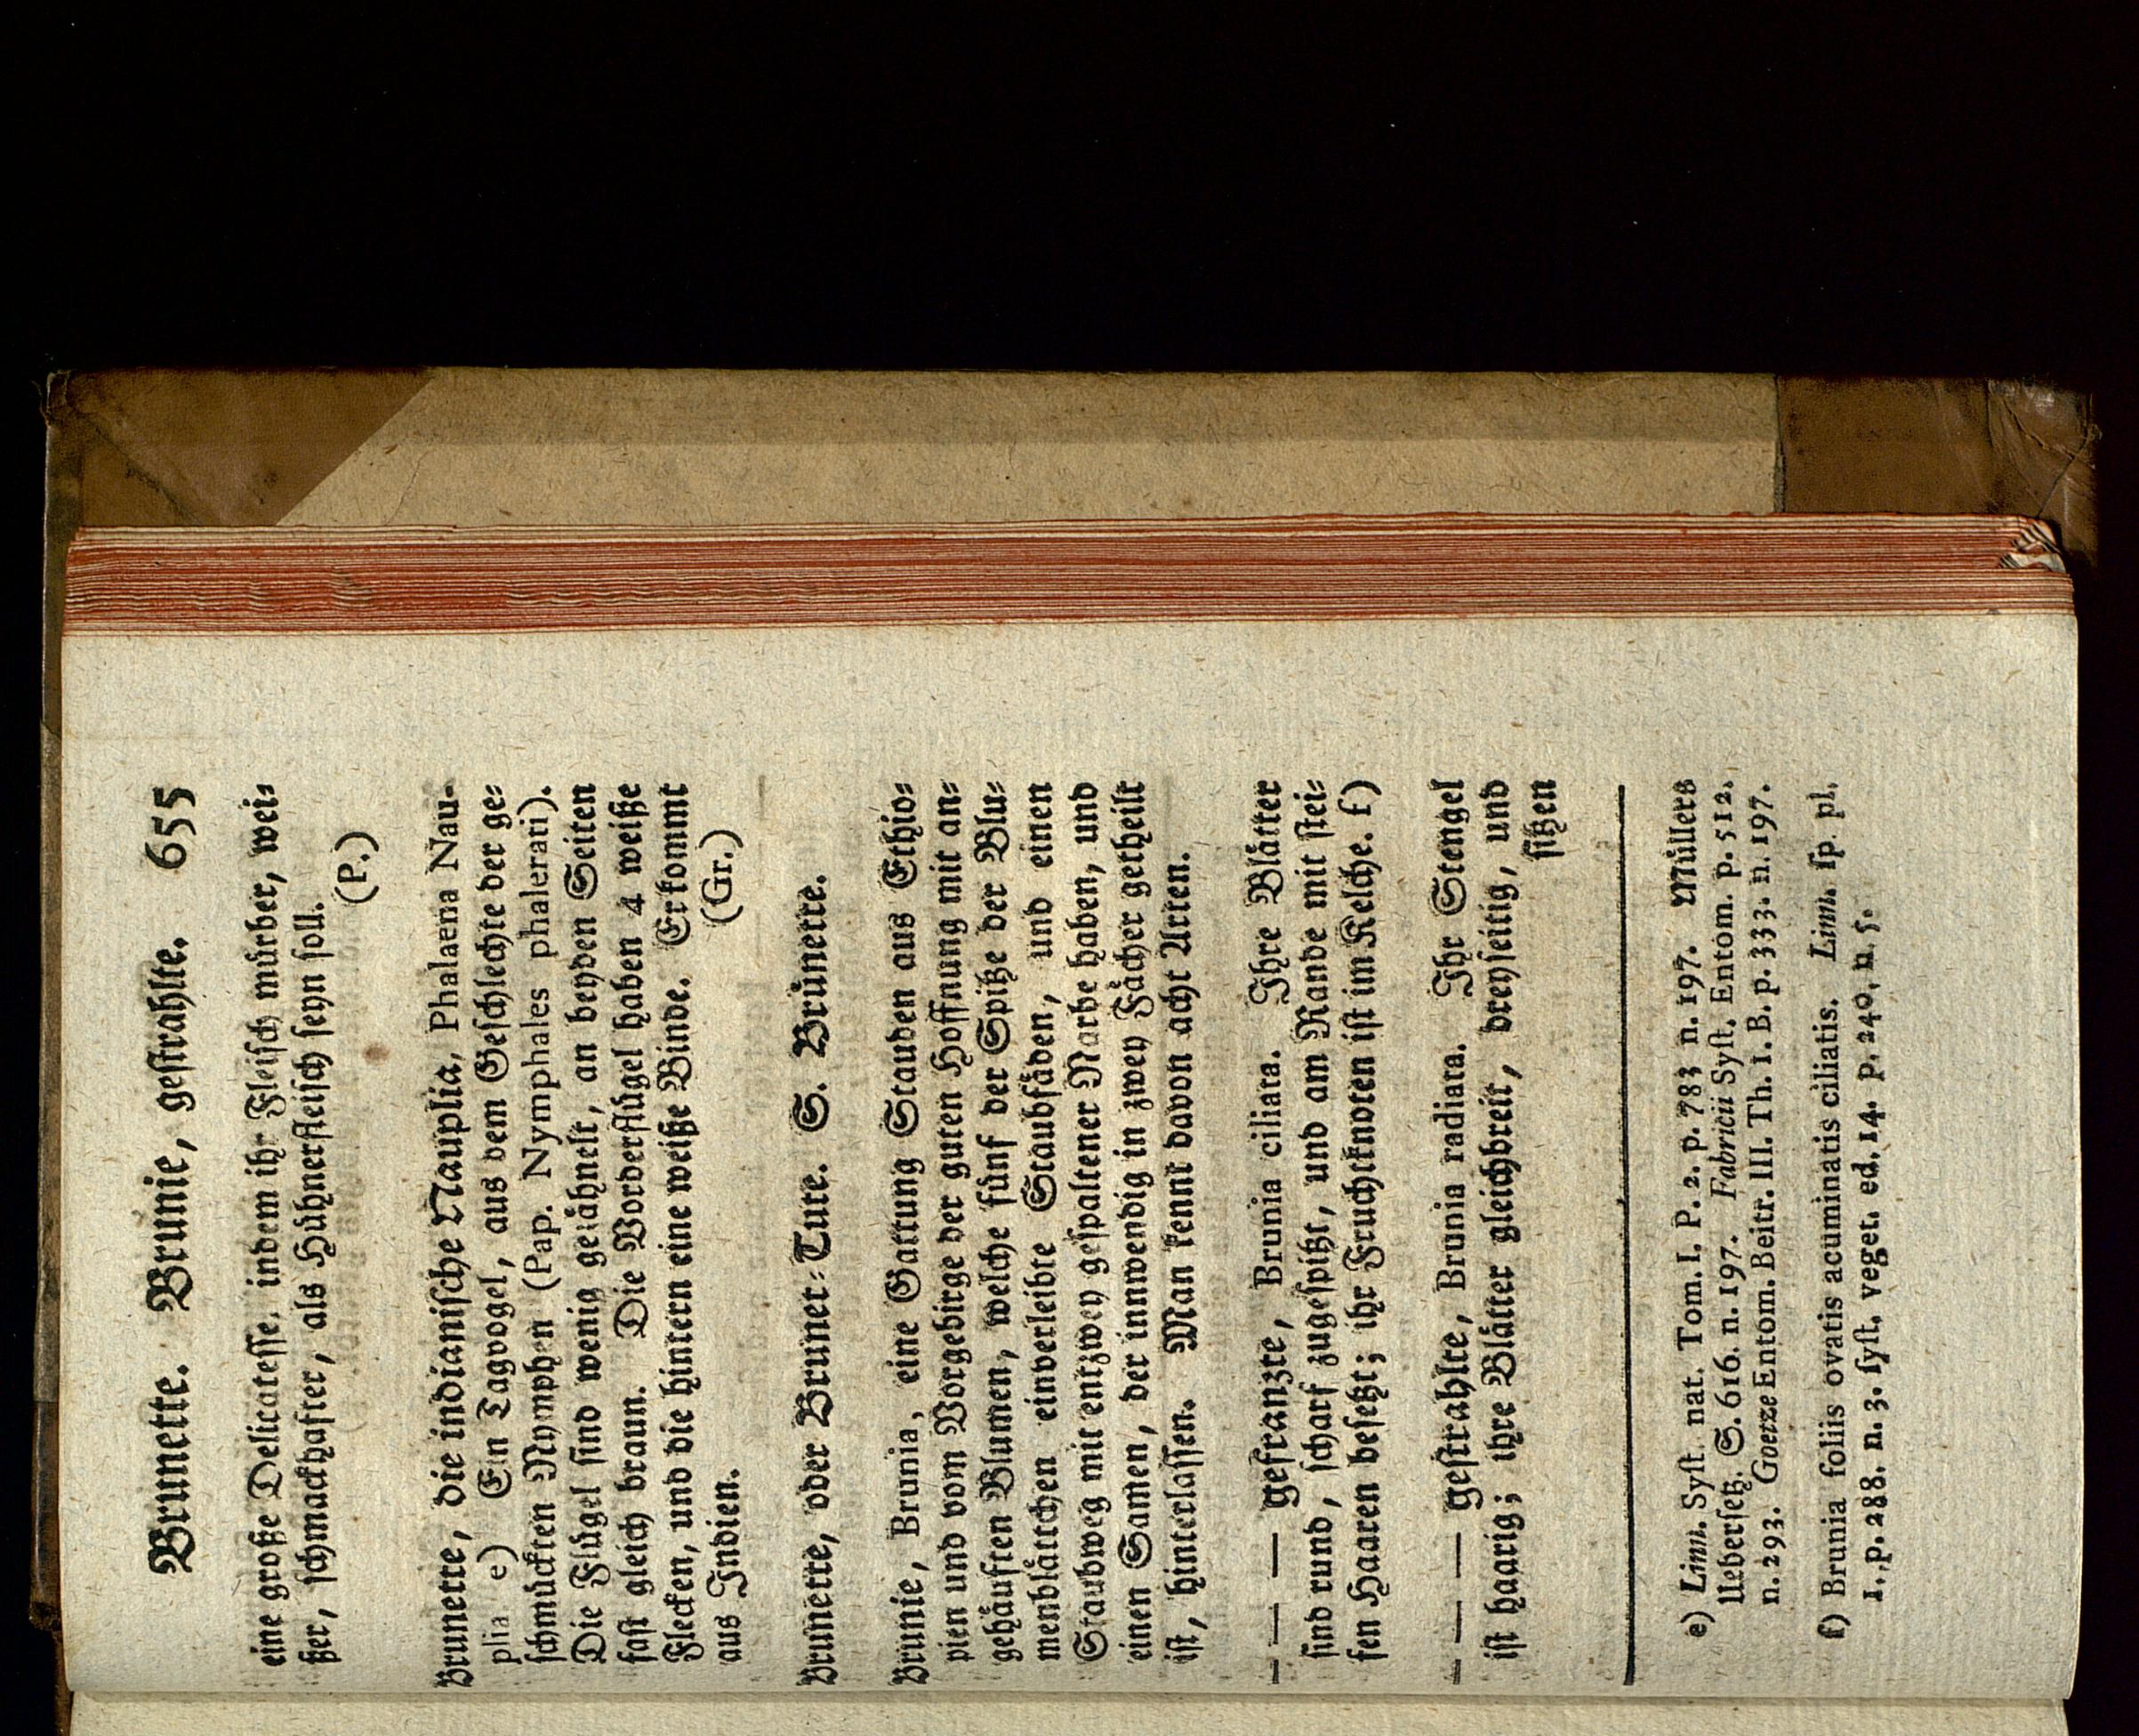 Brunette. Brunie, gestrahlte. 655
eine große Delicatesse, indem ihr Fleisch mürber, wei⸗
ßer, schmackhafter, als Hühnerfleisch seyn soll.
(P.)
Brunette, die indianische Nauplia, Phalaena Nau-
plia e) Ein Tagvogel, aus dem Geschlechte der ge⸗
schmückten Nymphen (Pap. Nymphales phalerati).
Die Flügel sind wenig gezähnelt, an beyden Seiten
fast gleich braun. Die Vorderflügel haben 4 weiße
Flecken, und die hintern eine weiße Binde. Er kommt
aus Indien. (Gr.)
Brunette, oder Bruner⸗Tute. S. Brünette.
Brunie, Brunia, eine Gattung Stauden aus Ethio⸗
pien und vom Vorgebirge der guten Hoffnung mit an⸗
gehäuften Blumen, welche fünf der Spitze der Blu⸗
menblättchen einverleibte Staubfäden, und einen
Staubweg mit entzwey gespaltener Narbe haben, und
einen Samen, der innwendig in zwey Fächer getheilt
ist, hinterlassen. Man kennt davon acht Arten.
— — — gefranzte, Brunia ciliata. Ihre Blätter
sind rund, scharf zugespitzt, und am Rande mit stei⸗
fen Haaren besetzt; ihr Fruchtknoten ist im Kelche. f)
— — — gestrahlte, Brunia radiata. Ihr Stengel
ist haarig; ihre Blätter gleichbreit, dreyseitig, und
sitzen
e) Linn. Syst. nat. Tom. I. P. 2. p. 783 n. 197. Müllers
Uebersetz. S. 616. n. 197. Fabricii Syst. Entom. p. 512.
n. 293. Goeze Entom. Beitr. III. Th. 1. B. p. 333. n. 197.
f) Brunia foliis ovatis acuminatis ciliatis. Linn. sp. pl.
1. p. 288. n. 3. syst. veget. ed. 14. p. 240. n. 5.